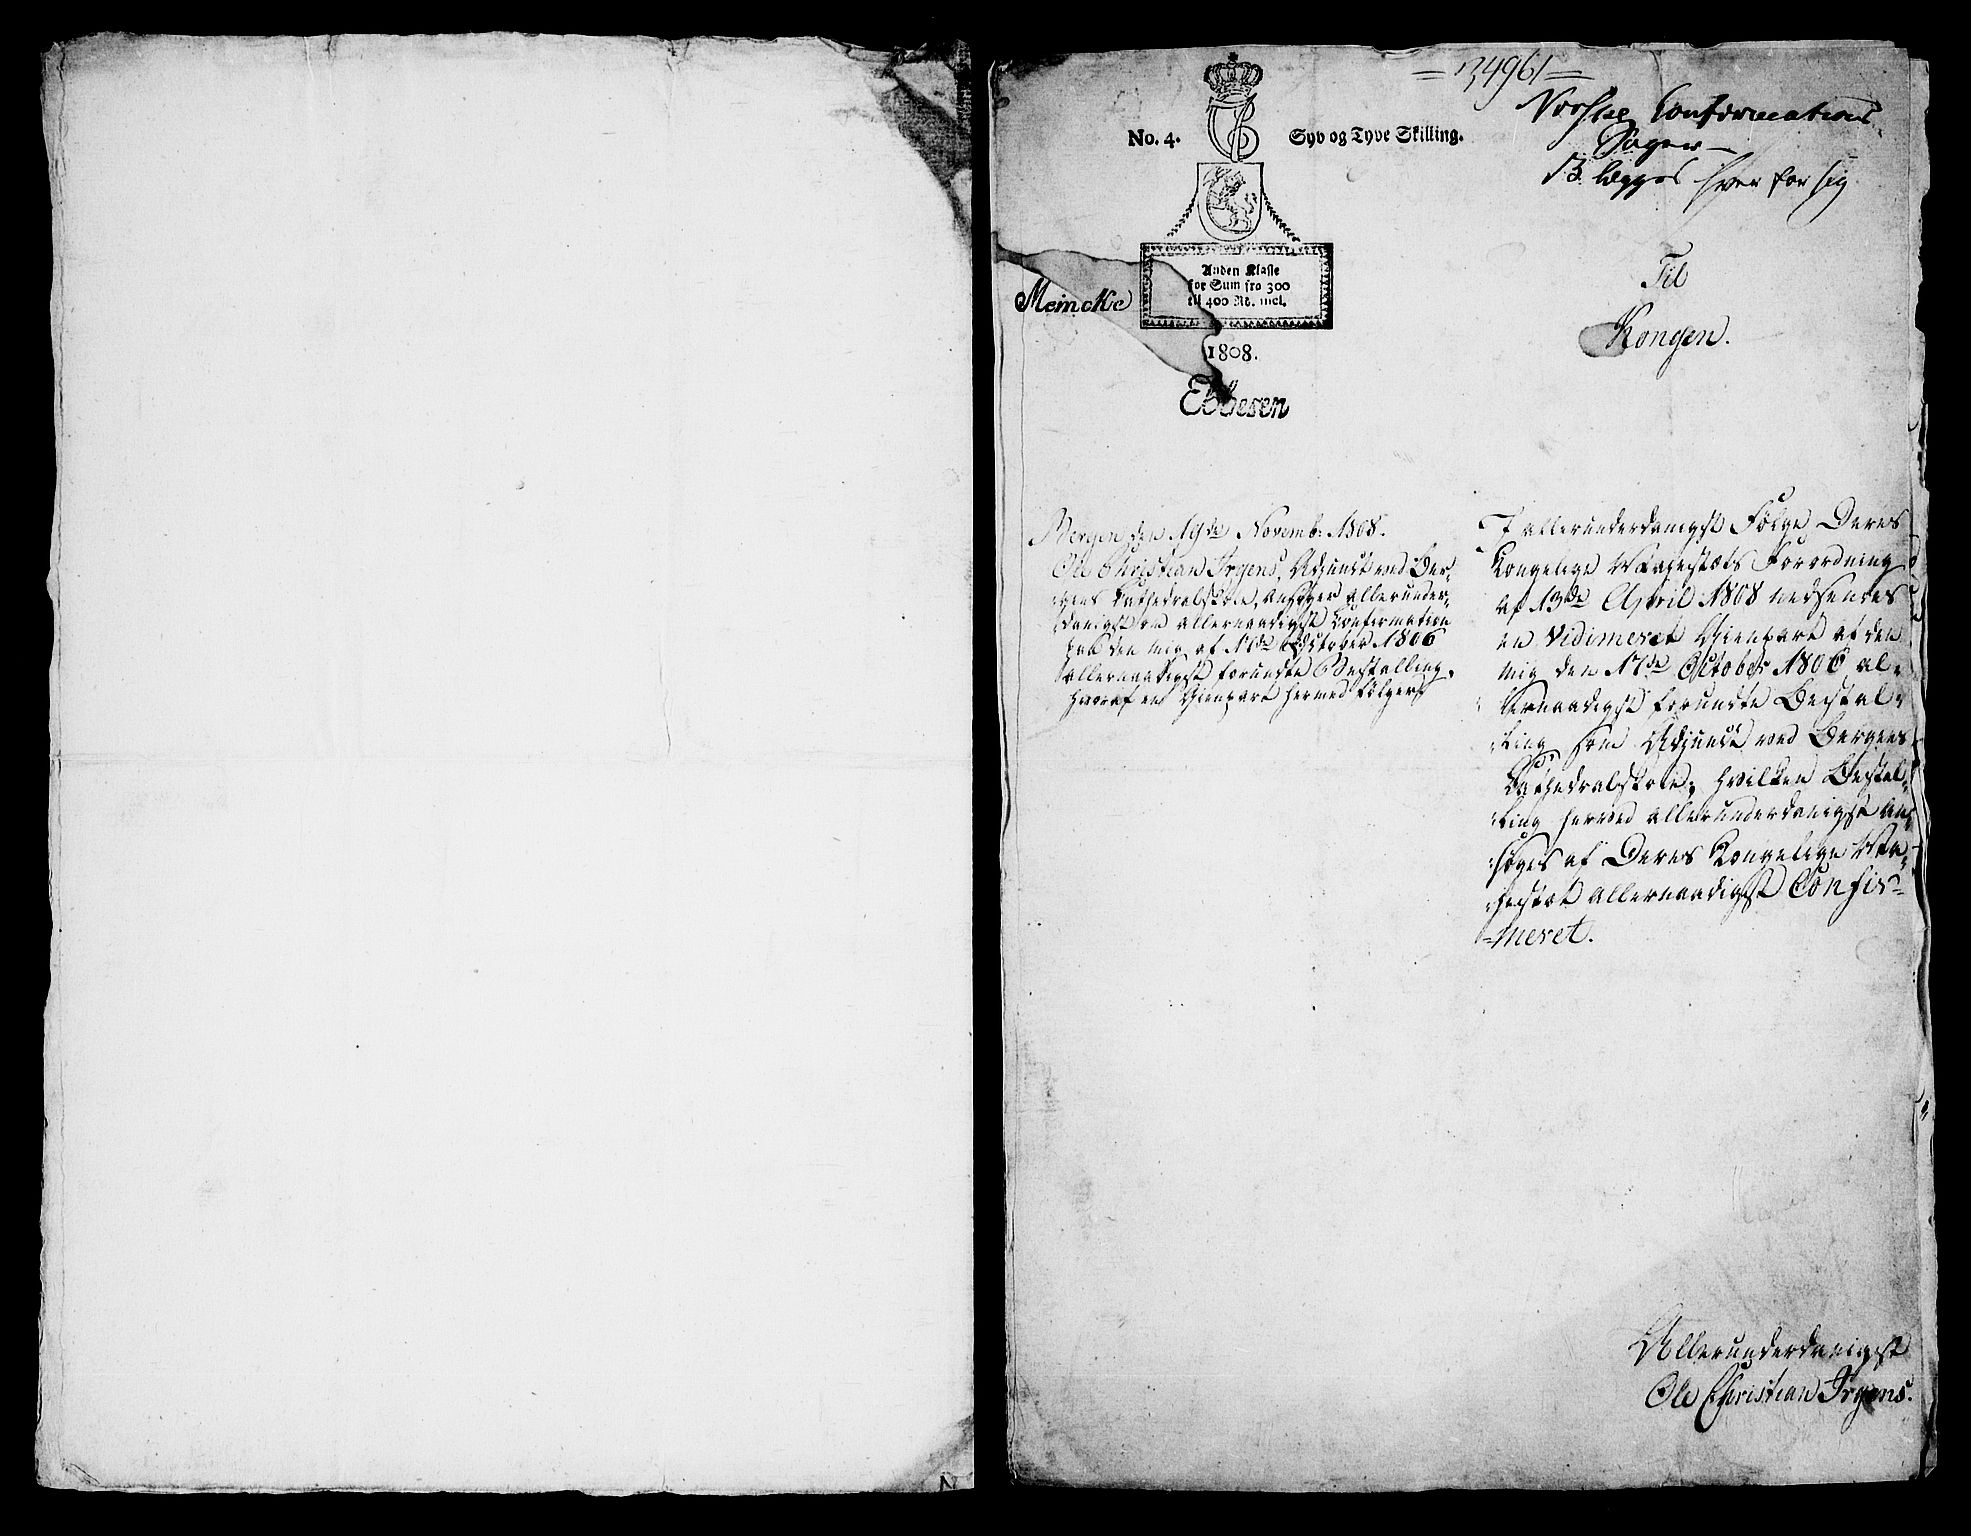 =13496/=
Norske Confirmations
Sager
lægges hver for sig
No. 4.
Syv og Tyve Skilling.
Anden Klasse
for Sum fra 300
til 400 Rd. incl.
Meincke
1808.
Ebbesen
Til
Kongen.
Bergen den 19de Novemb: 1808.
Ole Christian Irgens, Adjunct ved Ber-
gens Cathedralskole, ansøger allerunder-
danigst om allernaadigst Confirmation
paa den mig af 17de October 1806
allernaadigst forundte Bestalling,
hvoraf en Gienpart hermed følger.
I allerunderdanigst Følge Deres
Kongelige Majestæts Forordning
af 13de April 1808 nedsendes
en Vidimeret Gienpart af den
mig den 17de October 1806 al-
lernaadigst forundte Bestal-
ling som Adjunct ved Bergens
Cathedralskole; hvilken Bestal-
ling herved allerunderdanigst an-
søges af Deres Kongelige Ma-
jestæt allernaadigst Confir-
meret.
Allerunderdanigst
Ole Christian Irgens.